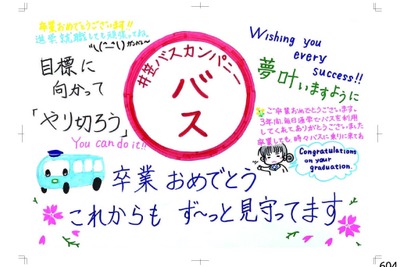 卒業おめでとうございます!!
進学、就職しても頑張ってね。
目標に
向かって
「やり切ろう」
You can do it!!
井笠バスカンパニー
バス
Wishing you
every
success!!
夢叶いますように
ご卒業おめでとうございます。
3年間、毎日通学でバスを利用
してくれてありがとうございました
卒業しても時々バスに乗りに来てね
Congratulations
on your
graduation.
卒業おめでとう
これからも ず〜っと見守ってます
604